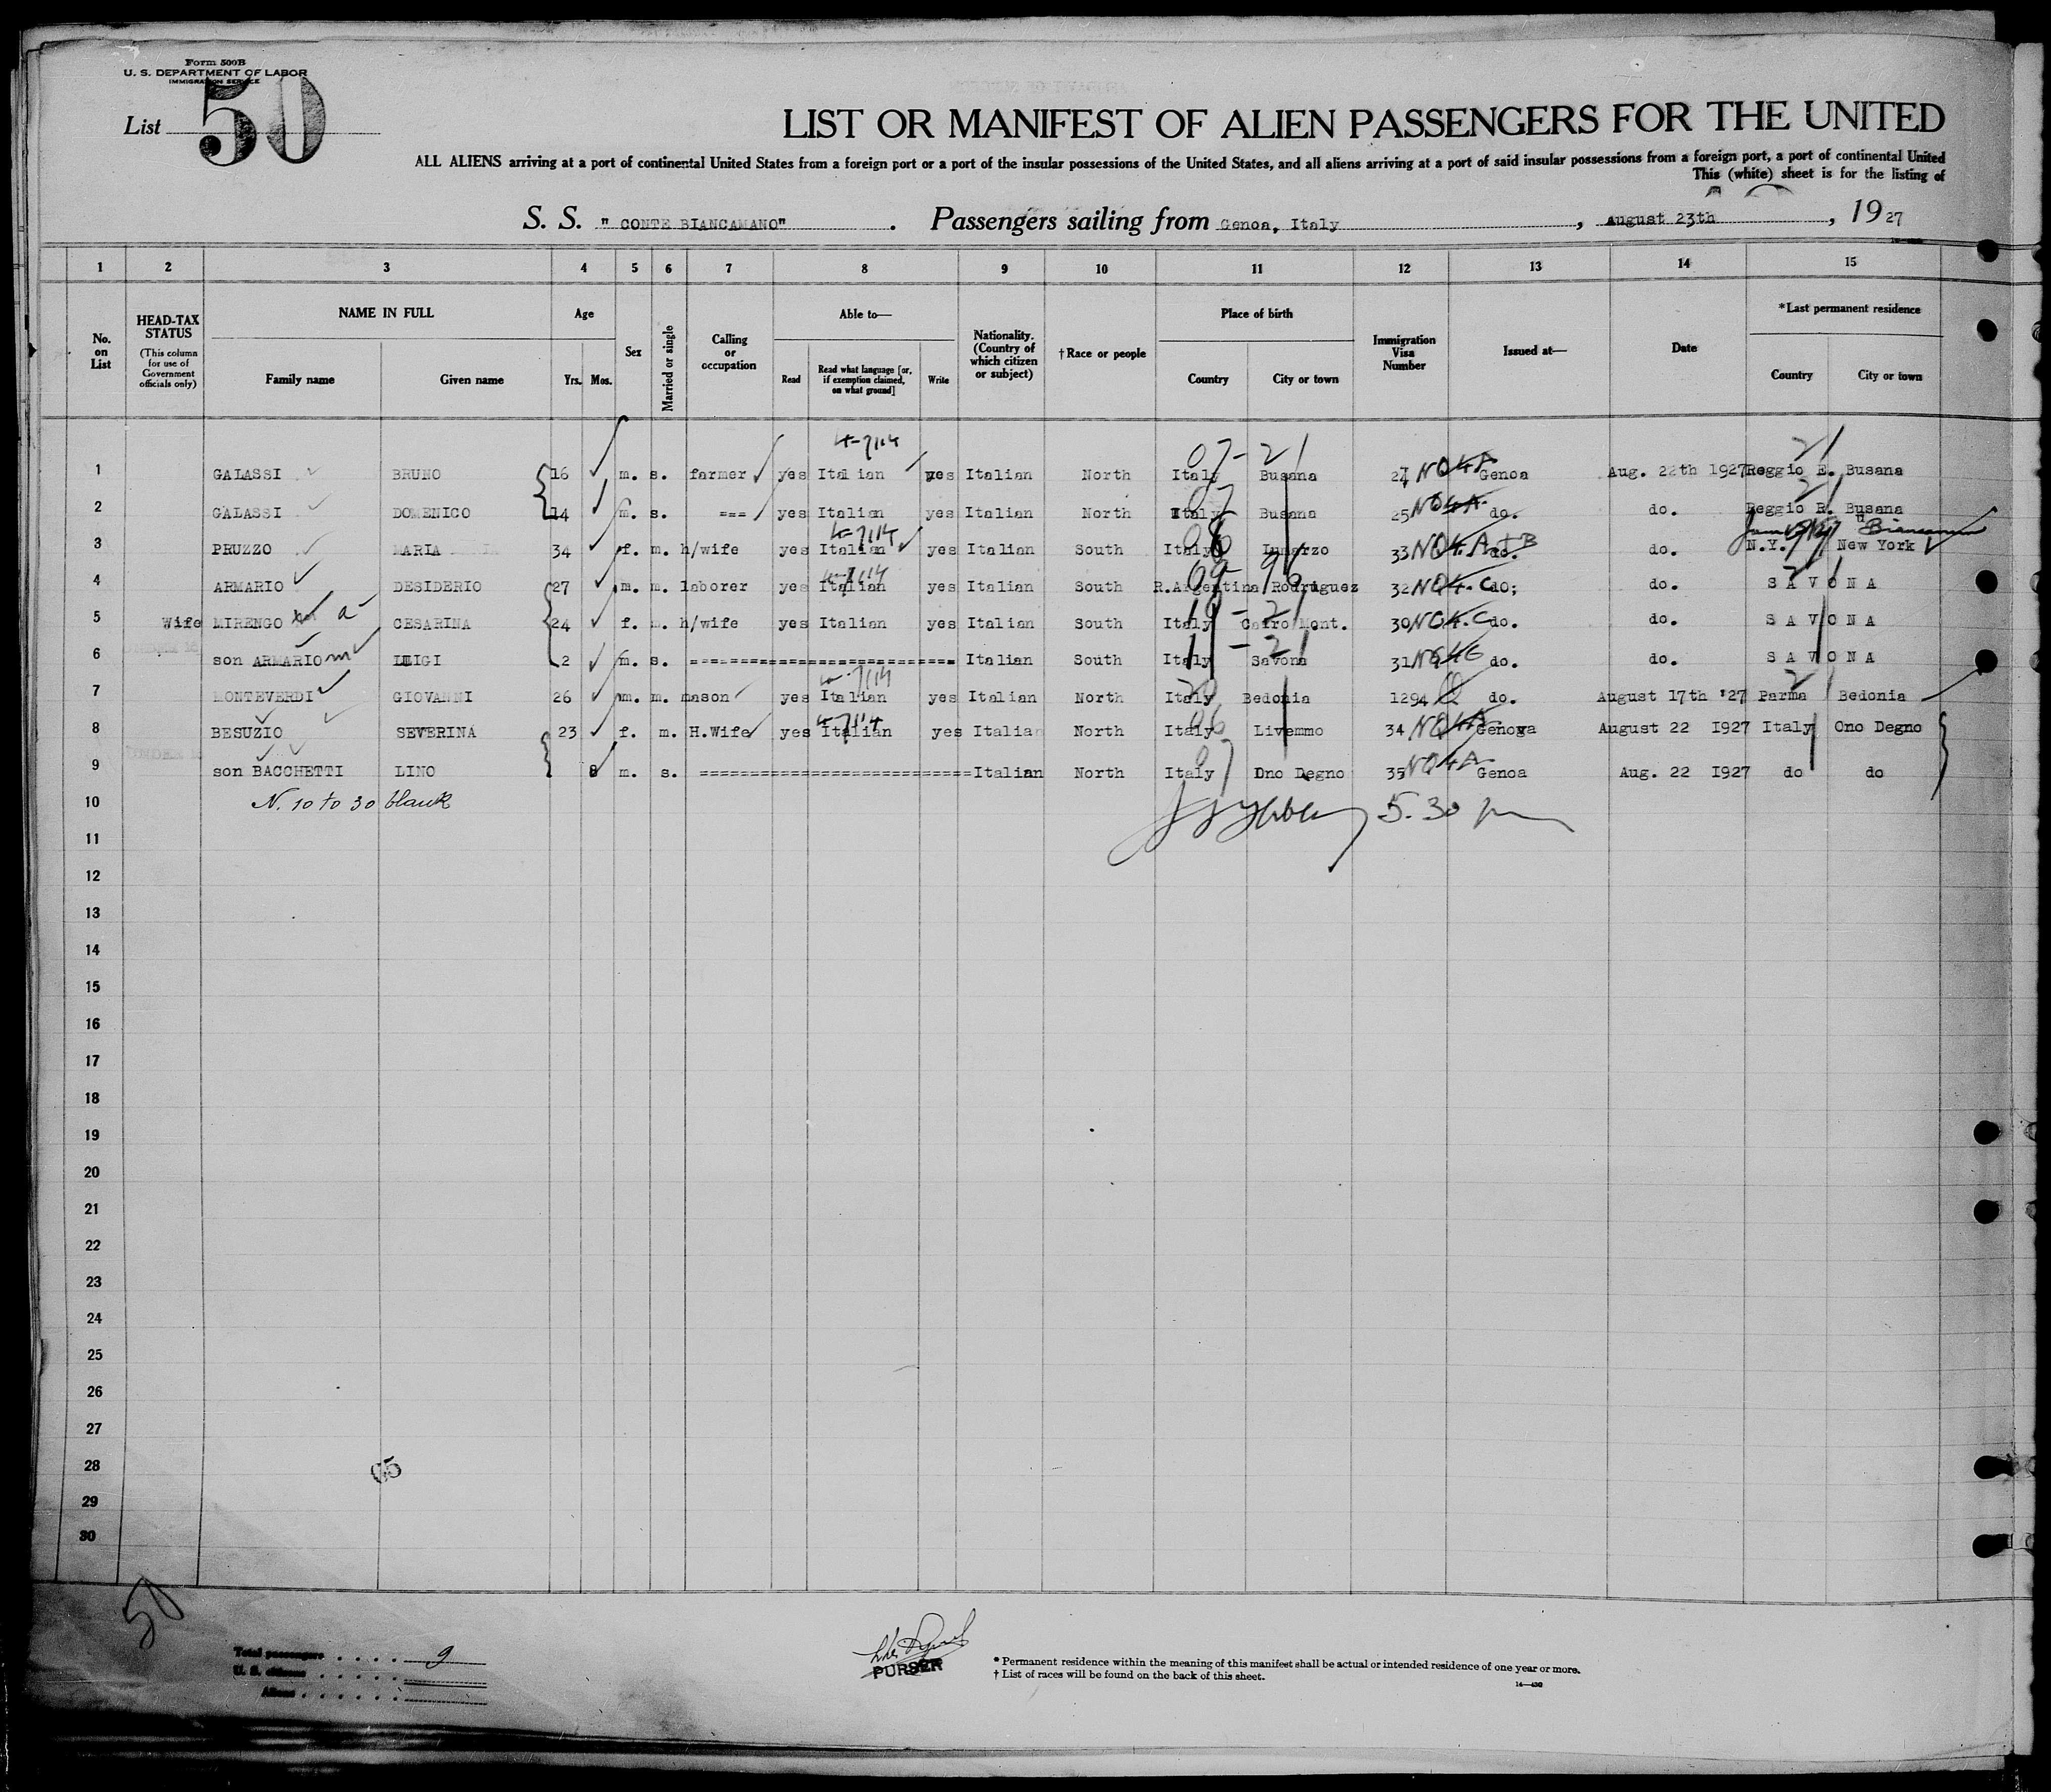 Form 500B
U. S. DEPARTMENT OF LABOR
IMMIGRATION SERVICE
List 50
LIST OR MANIFEST OF ALIEN PASSENGERS FOR THE UNITED
ALL ALIENS arriving at a port of continental United States from a foreign port or a port of the insular possessions of the United States, and all aliens arriving at a port of said insular possessions from a foreign port, a port of continental United
This (white) sheet is for the listing of
S. S. " CONTE BIANCAMANO" . Passengers sailing from Genoa, Italy , August 23th , 1927
1 2 3 4 5 6 7 8 9 10 11 12 13 14 15
No. on List
HEAD-TAX STATUS (This column for use of Government officials only)
NAME IN FULL Family name Given name
Age Yrs. Mos.
Sex
Married or single
Calling or occupation
Able to— Read Read what language [or, if exemption claimed, on what ground] Write
Nationality. (Country of which citizen or subject)
†Race or people
Place of birth Country City or town
Immigration Visa Number
Issued at—
Date
*Last permanent residence Country City or town
1 GALASSI BRUNO 16 m. s. farmer yes Italian yes Italian North Italy Busana 24 NQ4A Genoa Aug. 22th 1927 Reggio E. Busana
2 GALASSI DOMENICO 14 m. s. === yes Italian yes Italian North Italy Busana 25 NQ4A do. do. Reggio E. Busana
3 PRUZZO MARIA 34 f. m. h/wife yes Italian yes Italian South Italy 33 do. do. N.Y. New York
4 ARMARIO DESIDERIO 27 m. m. laborer yes Italian yes Italian South R.Argentina Rodriguez 32 NQ4.C do; do. SAVONA
5 Wife MIRENGO CESARINA 24 f. m. h/wife yes Italian yes Italian South Italy Cairo Mont. 30 NQ4.C do. do. SAVONA
6 son ARMARIO LUIGI 2 m. s. ========================= Italian South Italy Savona 31 do. do. SAVONA
7 MONTEVERDI GIOVANNI 26 m. m. mason yes Italian yes Italian North Italy Bedonia 1294 do. August 17th '27 Parma Bedonia
8 BESUZIO SEVERINA 23 f. m. H.Wife yes Italian yes Italian North Italy Livemmo 34 NQ4A Genova August 22 1927 Italy Ono Degno
9 son BACCHETTI LINO 8 m. s. ========================= Italian North Italy Ono Degno 35 NQ4A Genoa Aug. 22 1927 do do
10 N. 10 to 30 blank 5.30 pm
11
12
13
14
15
16
17
18
19
20
21
22
23
24
25
26
27
28
29
30
65
50
Total passengers . . . . 9
U. S. citizens . . . . .
Aliens . . . . . .
PURSER
* Permanent residence within the meaning of this manifest shall be actual or intended residence of one year or more.
† List of races will be found on the back of this sheet.
14—430